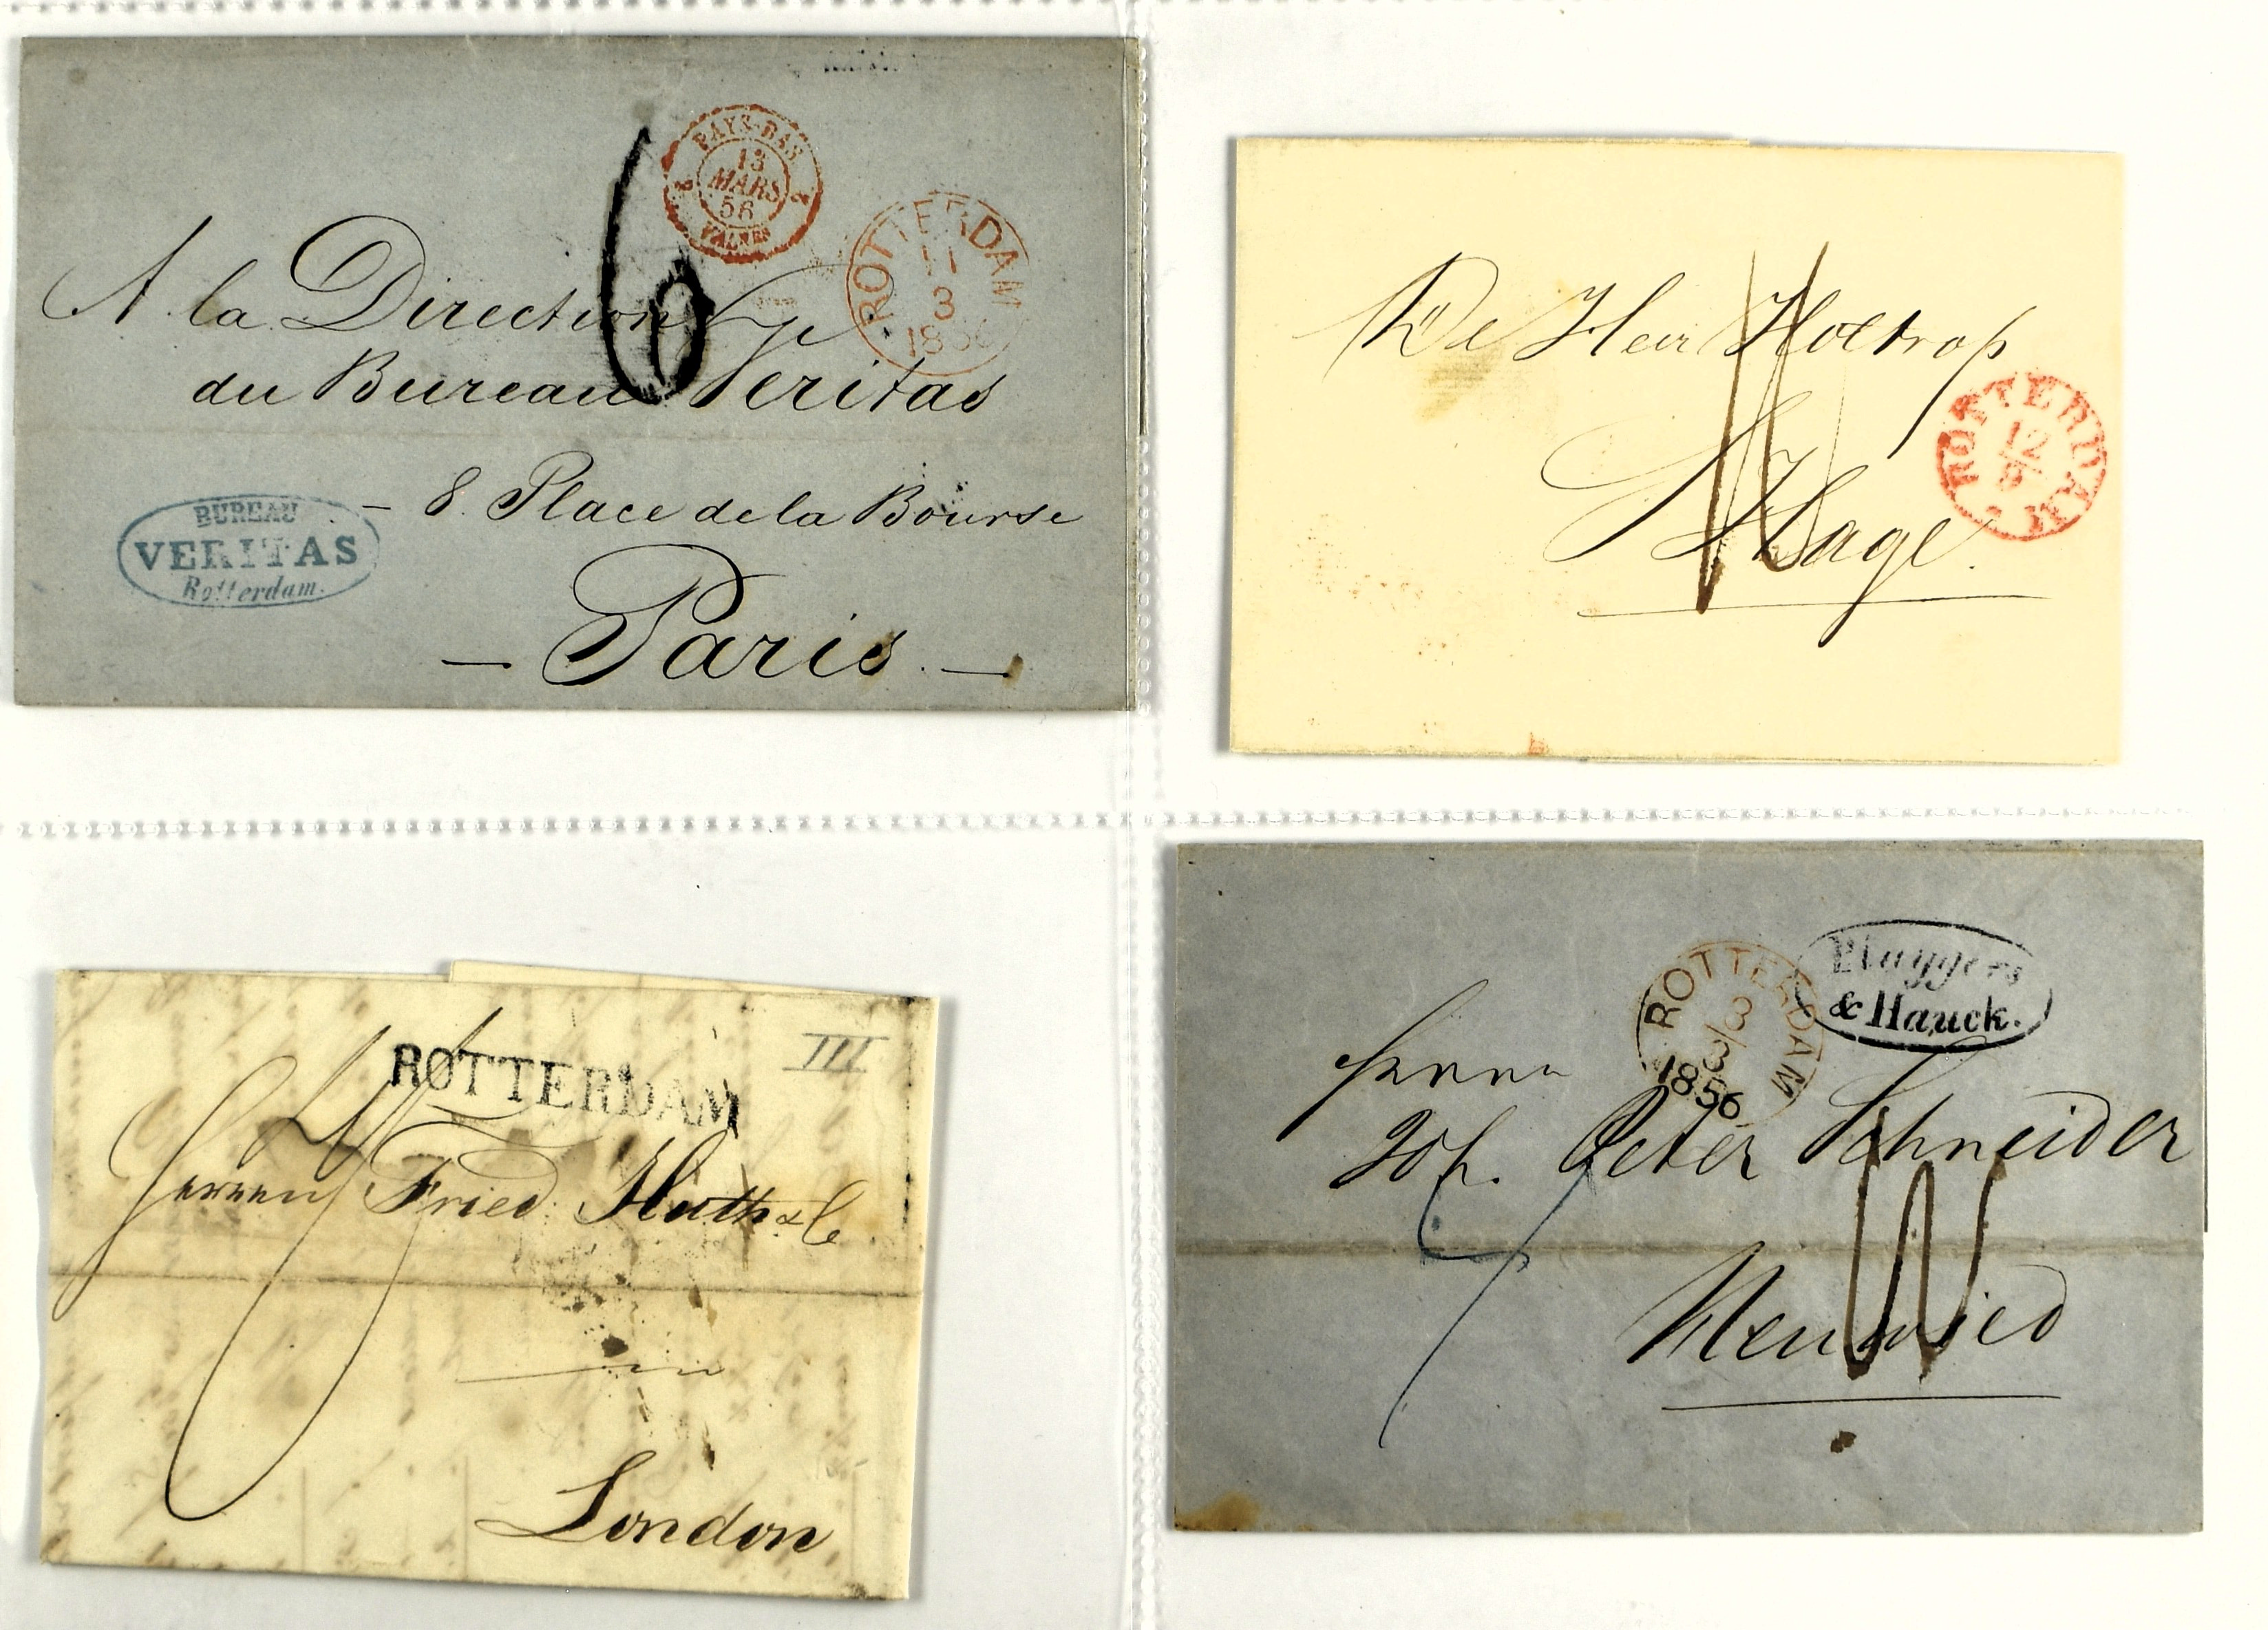 PAYS-BAS
13
MARS
56
VALNES
ROTTERDAM
11
3
1856
6
A la Direction
du Bureau Veritas
- 8. Place de la Bourse
- Paris. -
BUREAU
VERITAS
Rotterdam.
De Heer Holtrop
S'Hage.
ROTTERDAM
12
8
ROTTERDAM
III
Herren Fried. Huth & Co
in
London
ROTTERDAM
3/3
1856
& Hauck.
Herrn
Joh. Peter Schneider
Neuwied